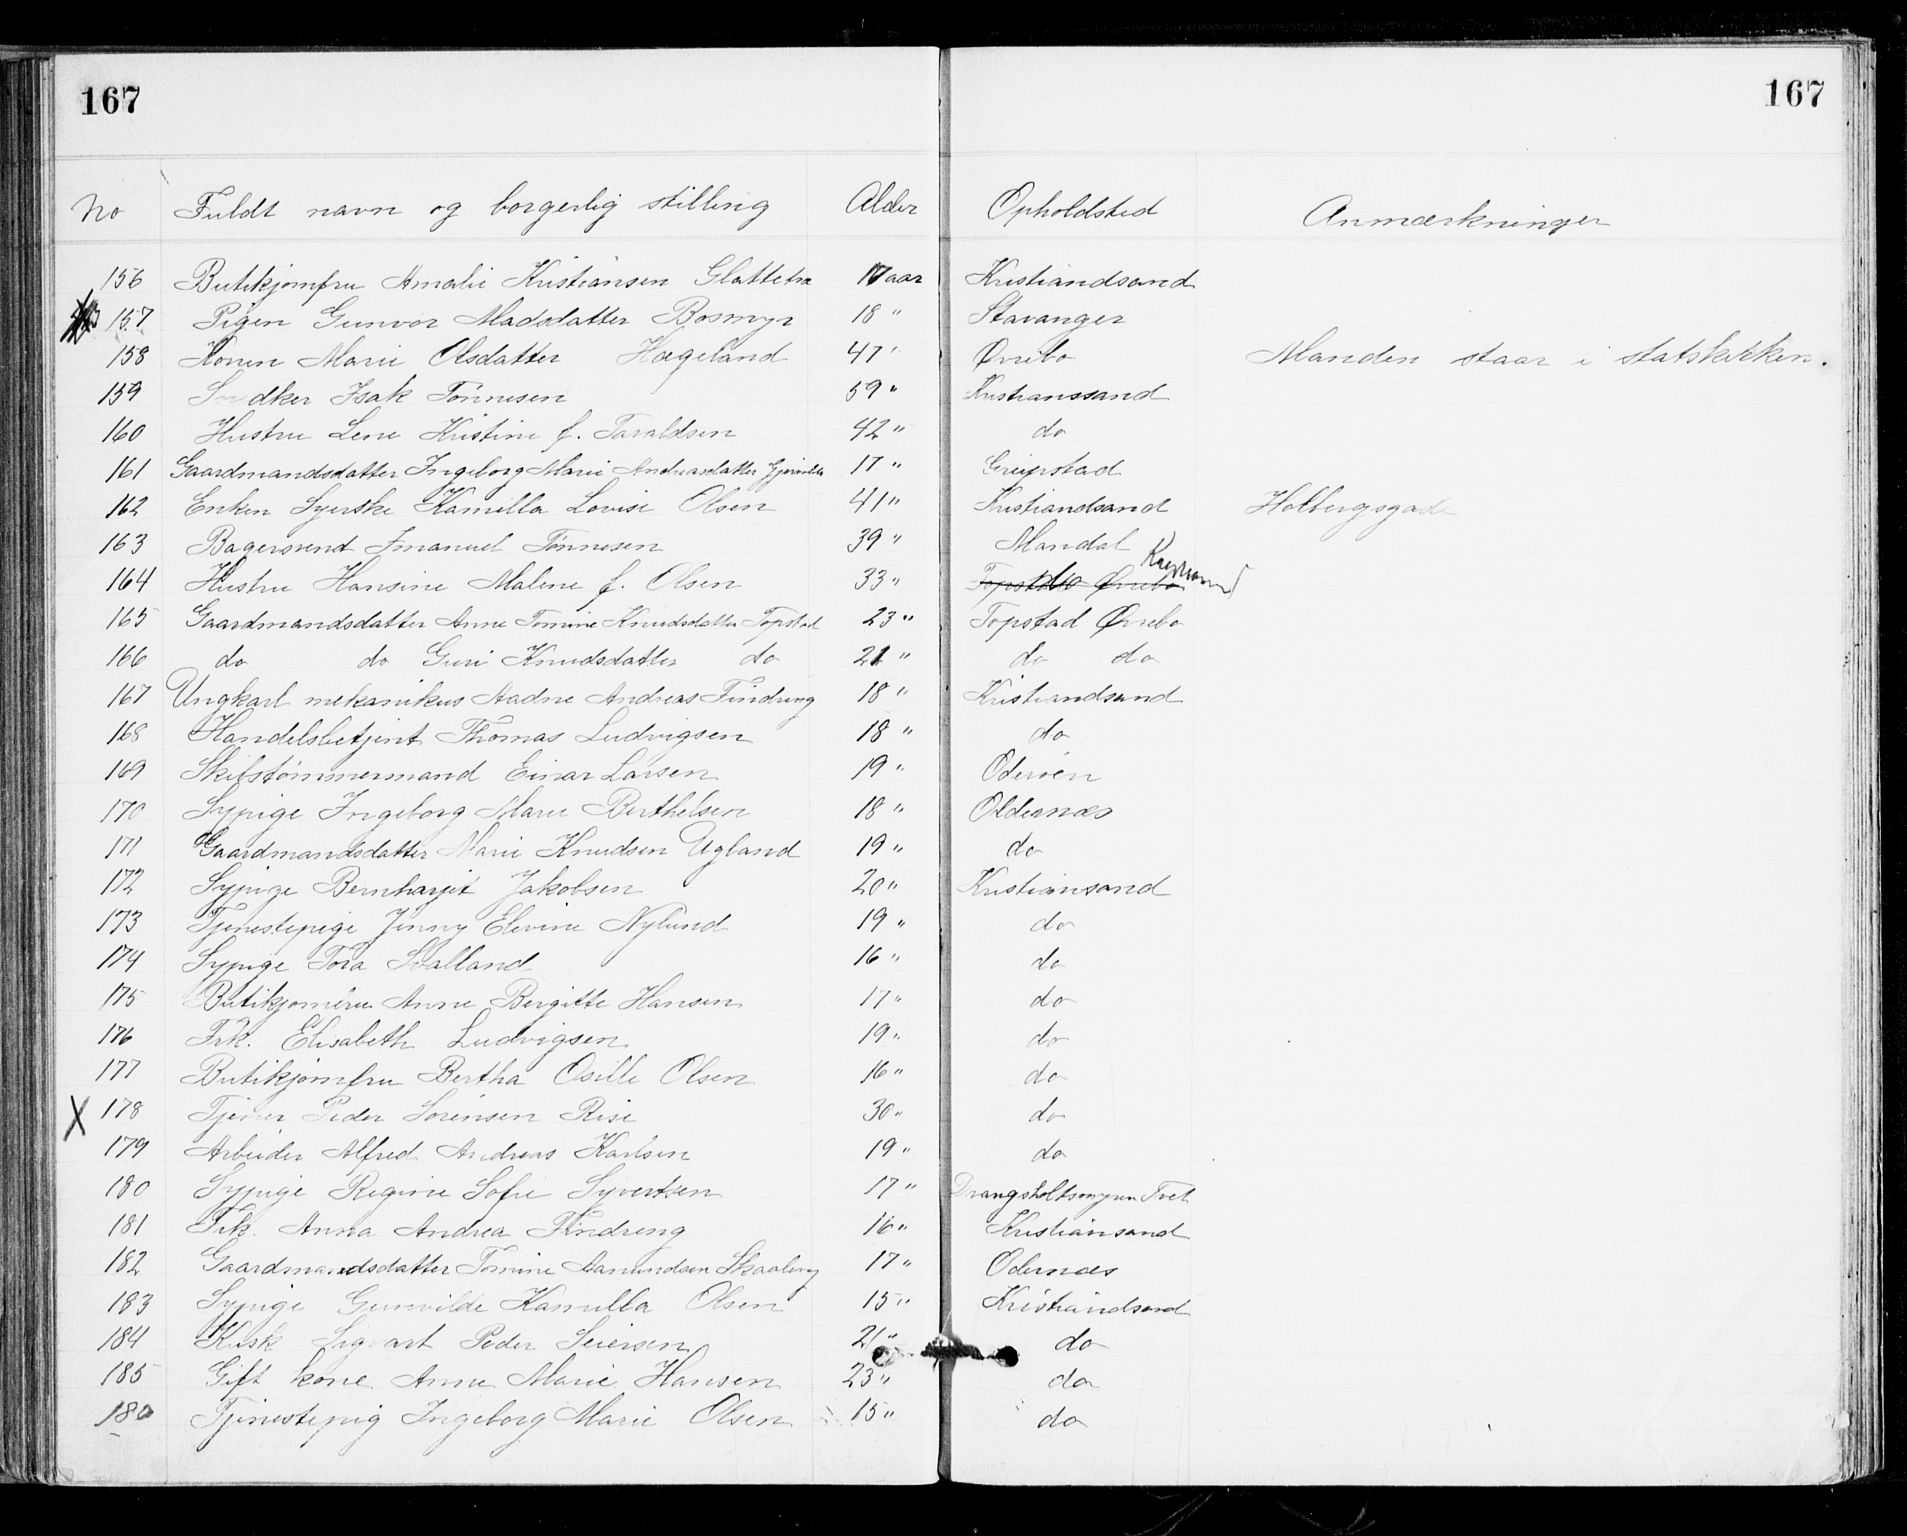 167 167
No Fuldt navn og borgerlig stilling Alder Opholdsted Anmærkninger
156 Butikjomfru Amalie Kristiansen Glattetra 17 aar Kristiandsand
157 Pigen Gunvor Madsdatter Bosmyr 18 " Stavanger
158 Konen Marie Olsdatter Hægeland 47 " Øvrebo Manden staar i statskirken.
159 Isak Tønnesen 59 " Kristianssand
160 Hustru Lene Kristine f. Taraldsen 42 " do
161 Gaardmandsdatter Ingeborg Marie Andreasdatter 17 " Greipstad
162 Enken Syerske Kamilla Lovise Olsen 41 " Kristiandsand Holbergsgade
163 Bagersvend Imanuel Tønnesen 39 " Mandal
164 Hustru Hansine Malene f. Olsen 33 " Topstad Øvrebo do
165 Gaardmandsdatter Anne Tomine Knudsdatter Topstad 23 " Topstad Øvrebo
166 do do Guri Knudsdatter do 21 " do do
167 Ungkarl mekanikus Aadne Andreas Findreng 18 " Kristiandsand
168 Handelsbetjent Thomas Ludvigsen 18 " do
169 Skibstømmermand Einar Larsen 19 " Oderøen
170 Sypige Ingeborg Marie Berthelsen 18 " Oldernæs
171 Gaardmandsdatter Marie Knudsen Ugland 19 " do
172 Sypige Bernharjit Jakobsen 20 " Kristiansand
173 Tjenestepige Jenny Elevine Nylund 19 " do
174 Sypige Tora Svalland 16 " do
175 Butikjomfru Anne Bergitte Hansen 17 " do
176 Frk. Elisabeth Ludvigsen 19 " do
177 Butikjomfru Bertha Osille Olsen 16 " do
X 178 Tjener Peder Sørensen Rise 30 " do
179 Arbeider Alfred Andreas Karlsen 19 " do
180 Sypige Regine Sofie Syvertsen 17 " Drangsholtsmyren Tvet
181 Frk. Anna Andrea Findreng 16 " Kristiansand
182 Gaardmandsdatter Tomine Aanundsen Skaalevig 17 " Odernæs
183 Sypige Gunvilde Kamilla Olsen 15 " Kristiandsand
184 Kusk Sigvart Peder Seiersen 21 " do
185 Gift kone Anne Marie Hansen 23 " do
180 Tjenestepig Ingeborg Marie Olsen 15 " do